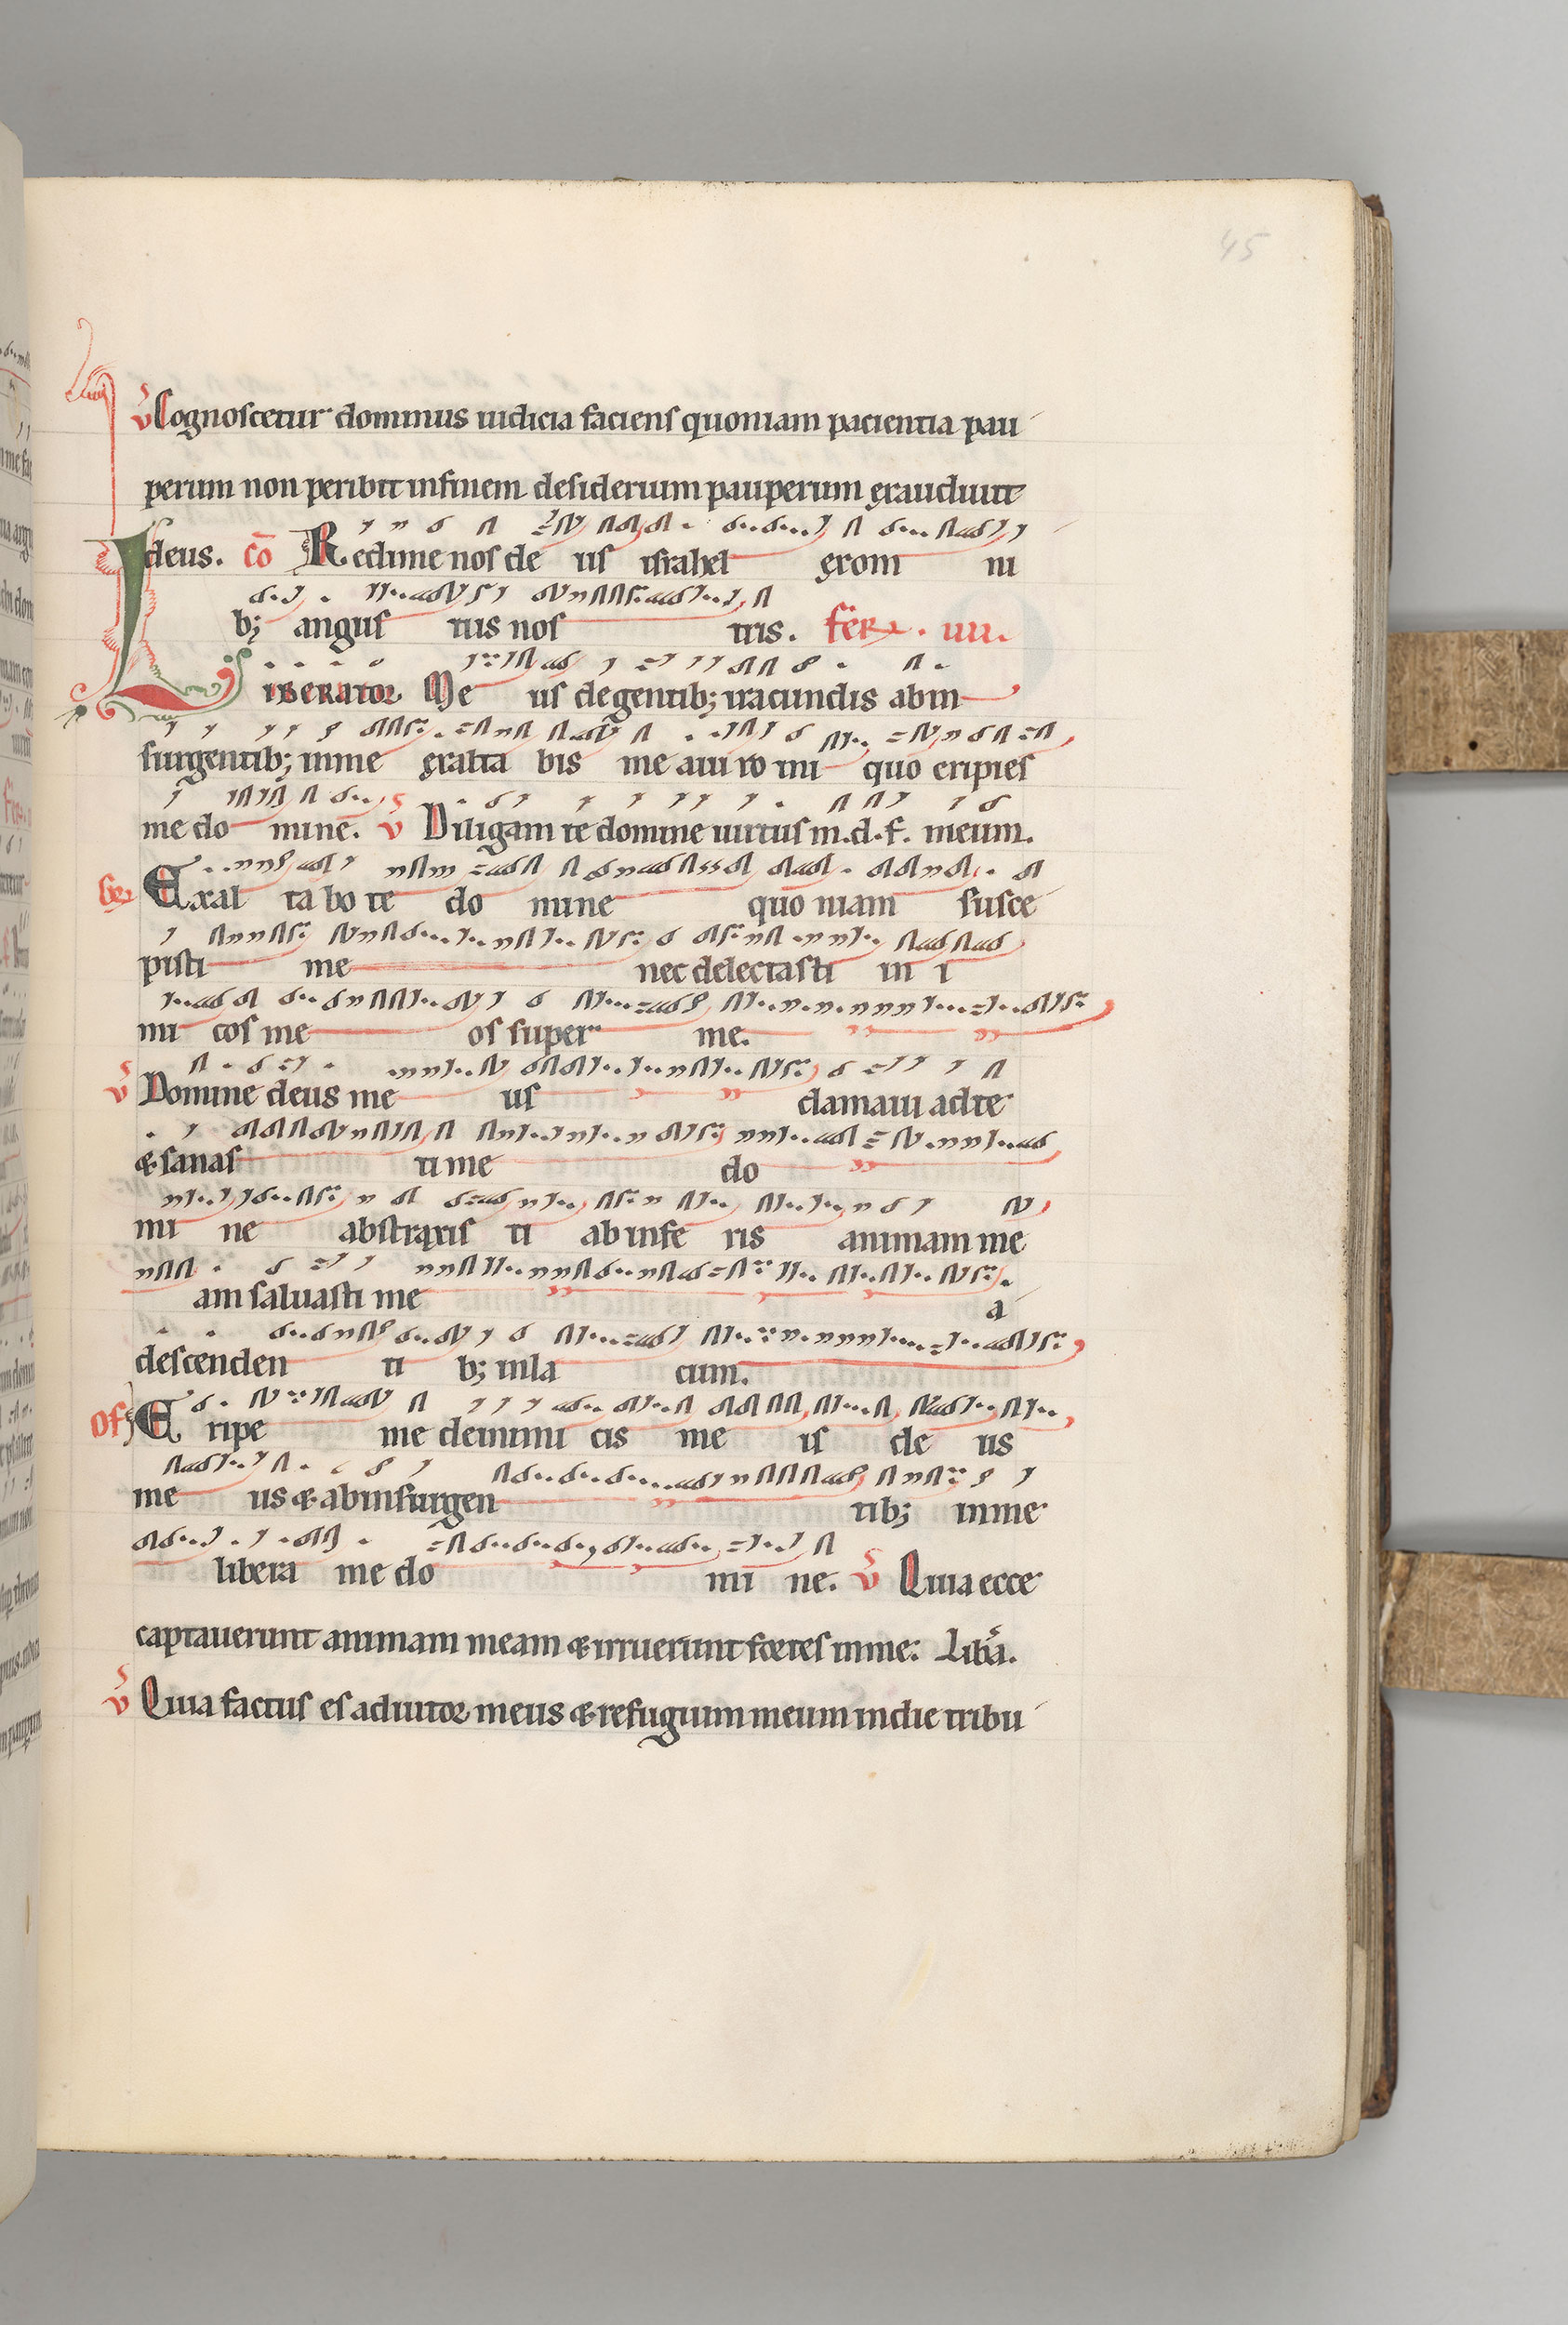 45
v Cognoscetur dominus iudicia faciens quoniam pacientia pau
perum non peribit infinem desiderium pauperum exaudiuit
deus. cō Redime nos de us israhel ex om ni
b; angus tiis nos tris. fer. iiii.
Liberator Me us de gentib; iracundis ab in
surgentib; inme exalta bis me a uiro ini quo eripies
me do mine. v Diligam te domine uirtus m.d.f. meum.
Gr Exal ta bo te do mine quo niam susce
pisti me nec delectasti in i
mi cos me os super me.
v Domine deus me us clamaui ad te
& sanas ti me do
mi ne abstraxis ti ab infe ris animam me
am saluasti me a
descenden ti b; in la cum.
Of E ripe me de inimi cis me is de us
me us & ab insurgen tib; in me
libera me do mi ne. v Quia ecce
captauerunt animam meam & irruerunt fortes in me. Libā.
v Quia factus es adiutor meus & refugium meum in die tribu